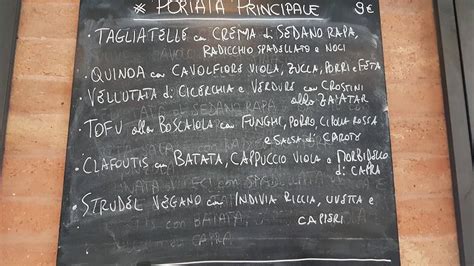 * PORTATA PRINCIPALE 9€
• TAGLIATELLE con CREMA di SEDANO RAPA,
RADICCHIO SPADELLATO e NOCI
• QUINOA con CAVOLFIORE VIOLA, ZUCCA, PORRI e FETA
• VELLUTATA di CICERCHIA e VERDURE con CROSTINI
allo ZA'ATAR
• TOFU alla BOSCAIOLA con FUNGHI, PORRO, CIPOLLA ROSSA
e SALSA di CAROTE
• CLAFOUTIS con BATATA, CAPPUCCIO VIOLA e MORBIDELLO
di CAPRA
• STRUDEL VEGANO con INDIVIA RICCIA, UVETTA e
CAPPERI